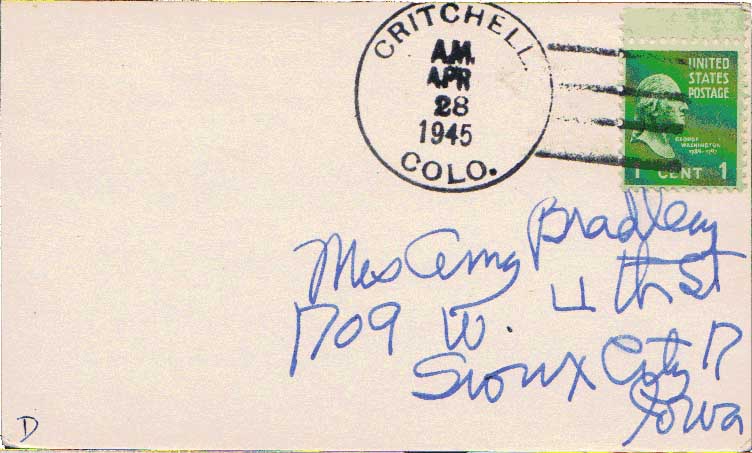 CRITCHELL.
A.M.
APR
28
1945
COLO.
UNITED
STATES
POSTAGE
GEORGE
WASHINGTON
1789-1797
1 CENT 1
Mrs Amy Bradley
1709 W. 4th St
Sioux City 17
Iowa
D